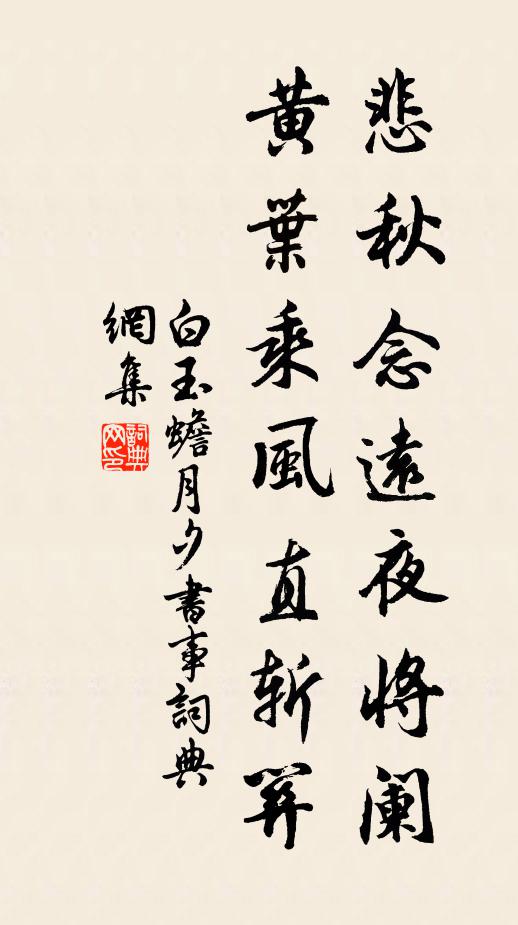 悲秋念遠夜將闌
黃葉乘風直斬關
白玉蟾月夕書事詞典
網集
詞典
网印